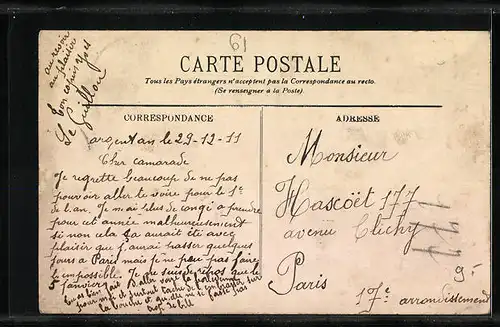 61
CARTE POSTALE
Tous les Pays étrangers n'acceptent pas la Correspondance au recto.
(Se renseigner à la Poste).
CORRESPONDANCE
ADRESSE
argentan le 29-12-11
Cher camarade
Je regrette beaucoup de ne pas
pouvoir aller te voire pour le 1e
de l'an. Je n'ai plus de congé a prendre
pour cet année malheureusement
si non cela ça aurait été avec
plaisir que j'aurai passer quelques
jours a Paris mais je ne peu pas faire
l'impossible. Je suis de repos que le
5 janvier
la bouche et qu'elle ne se fasse pas
trop de bile
au revoir
au plaisir
ton copain
Le Guillou
Monsieur
Hascoët 177
avenu Clichy
Paris
17e arrondissement
9-